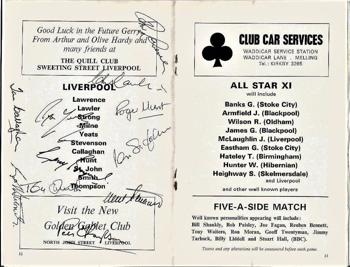 Good Luck in the Future Gerry
From Arthur and Olive Hardy and
many friends at
THE QUILL CLUB
SWEETING STREET LIVERPOOL
LIVERPOOL
Lawrence
Lawler
Strong
Milne
Yeats
Stevenson
Callaghan
Hunt
St. John
Smith
Thompson
Roger Hunt
Visit the New
Golden Goblet Club
NORTH JOHN STREET LIVERPOOL
CLUB CAR SERVICES
WADDICAR SERVICE STATION
WADDICAR LANE . MELLING
Tel.: KIRKBY 3265
ALL STAR XI
will include
Banks G. (Stoke City)
Armfield J. (Blackpool)
Wilson R. (Oldham)
James G. (Blackpool)
McLaughlin J. (Liverpool)
Eastham G. (Stoke City)
Hateley T. (Birmingham)
Hunter W. (Hibernian)
Heighway S. (Skelmersdale)
and Liverpool
and other well known players
FIVE-A-SIDE MATCH
Well known personalities appearing will include:
Bill Shankly, Bob Paisley, Joe Fagan, Reuben Bennett,
Tony Waiters, Ron Moran, Geoff Twentyman, Jimmy
Tarbuck, Billy Liddell and Stuart Hall, (BBC).
Any alterations to the teams will be announced before each game.